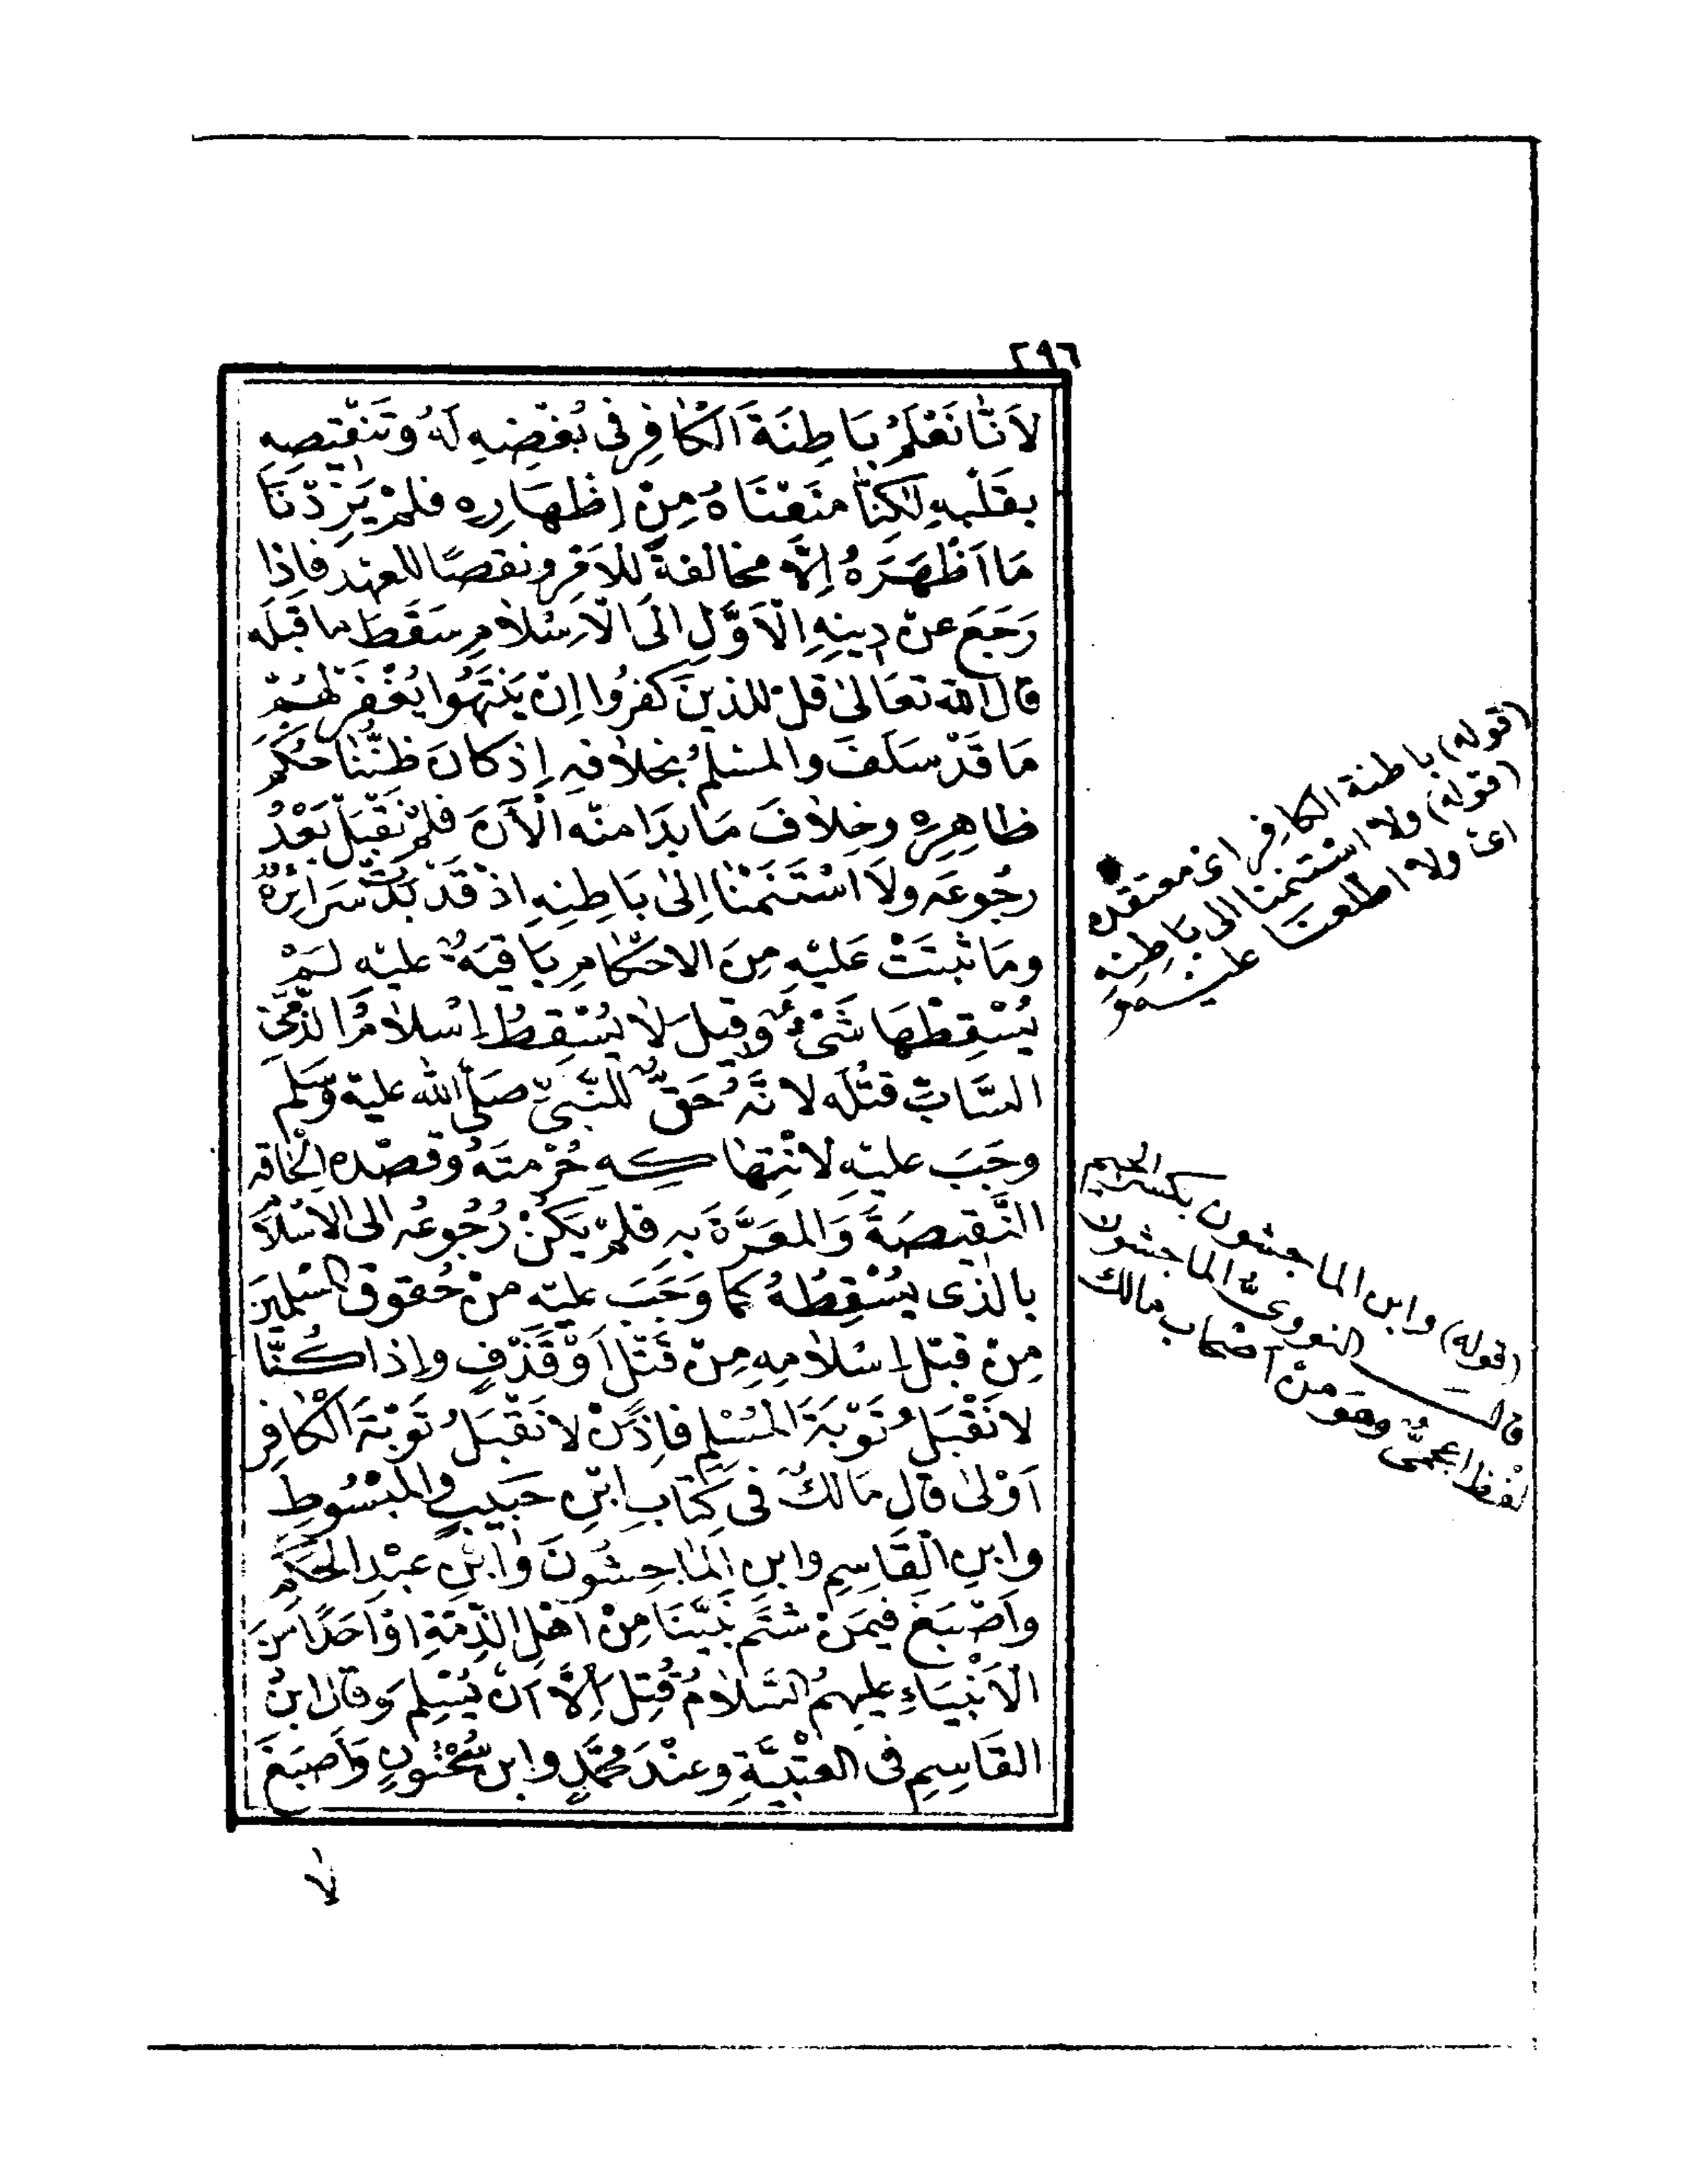 ٢٩٦
لِاَنَّا نَعْلَمُ بَاطِنَةَ الْكَافِرِ فى بُغْضِهِ لَهُ وَتَنَقُّصِهِ
بِقَلْبِهِ لٰكِنَّا مَنَعْنَاهُ مِنْ اِظْهَارِهِ فلمْ يَزِدْنَا
مَا اَظْهَرَهُ اِلَّا مخالفةً لِلْاَمْرِ ونَقْضًا للعهد فَاِذَا
رَجَعَ عنْ دِينِهِ الْاَوَّلِ اِلَى الْاِسْلَامِ سَقَطَ ما قبلَه
قال الله تعَالىٰ قلْ للذينَ كفرُوا اِنْ يَنْتَهُوا يُغْفَرْ لهُمْ
مَا قَدْ سَلَفَ والمسْلِمُ بخلافِه اِذْ كانَ ظنُّنَا حُكْمَ
ظاهِرِهِ وخِلَافَ مَا بَدَا منْه الْآنَ فلمْ نَقْبَلْ بَعْدُ
رجُوعَه ولَا اسْتَنَمْنَا اِلىٰ بَاطِنِهِ اذْ قَدْ بَدَتْ سَرَائِرُهُ
ومَا ثَبَتَتْ عَلَيْهِ مِنَ الاحْكَامِ بَاقيَةٌ عليْهِ لَمْ
يُسْقِطْهَا شَىْءٌ وَقيلَ لَا يُسْقِطُ اِسْلَامُ الذِّمِّىِّ
السَّابِّ قتْلَه لانَّهُ حَقٌّ للنَّبِىِّ صَلَّى الله عليْه وَسَلم
وجَبَ عليْه لانْتِهَاكِهِ حُرْمتَهُ وقصْدِه اِلْحَاقَ
النَّقِيصَةَ وَالمَعَرَّةَ به فلمْ يَكُنْ رُجُوعُه الى الاسْلَامِ
بالَّذى يُسْقِطُهُ كما وَجَبَ عليْه منْ حُقوقِ المسْلِمِينَ
مِنْ قبْلِ اِسْلَامِهِ مِنْ قَتْلٍ اَوْ قَذْفٍ واِذَا كُنَّا
لا نَقْبَلُ تَوْبَةَ المُسْلِمِ فَاِذَنْ لا نَقْبَلُ تَوْبَةَ الْكَافِرِ
اَوْلىٰ قال مَالكٌ فى كِتَابِ ابْنِ حَبيبٍ والمَبْسُوطِ
وابنِ الْقَاسِمِ وابنِ الْمَاجِشُونَ وَابْنِ عبْدِ الحَكَمِ
واَصْبَغَ فيمَنْ شتَمَ نَبِيَّنَا مِنْ اَهْلِ الذِّمَّةِ اَوْ اَحَدًا مِنَ
الْاَنْبِيَاءِ عليهِمُ السَّلَامُ قُتِلَ اِلَّا اَنْ يُسْلِمَ وَقَالَ ابنُ
القَاسِمِ فى العتْبِيَّةِ وعنْدَ محمَّدٍ وابنِ سُحْنُونٍ وَاَصبَغَ
لا
(قوله) باطنة الكافِر اى معتقده
(قوله) ولا استنمنا الى باطِنِهِ
اى ولا اطلعنا عليه
(قوله) وابن الماجشون بكسر الجيم
قال النووىُّ الماجشون
لفظ اعجمىٌّ وهو منْ اصْحابِ مالك